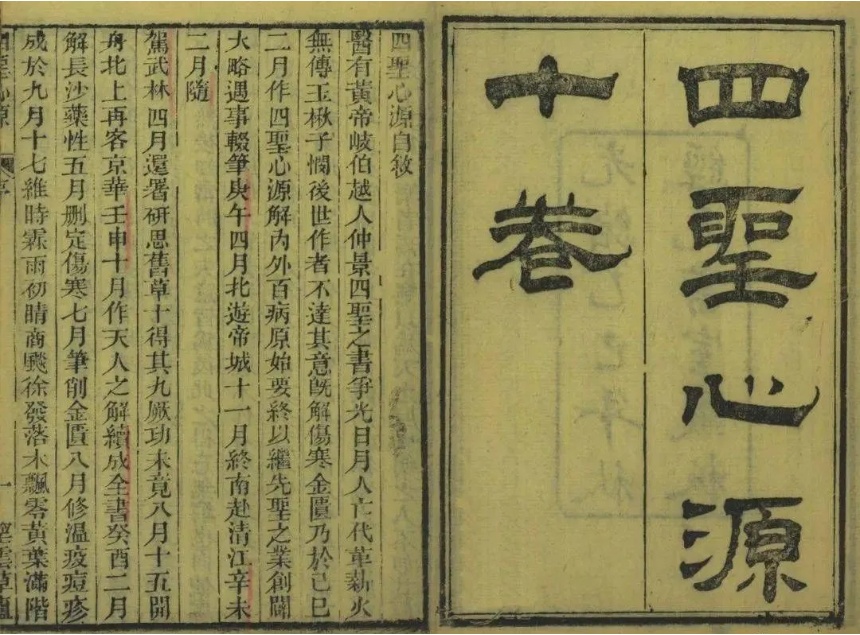 四聖心源
十卷
四聖心源自敘
醫有黃帝岐伯越人仲景四聖之書爭光日月人亡代革薪火
無傳玉楸子憫後世作者不達其意旣解傷寒金匱乃於己巳
二月作四聖心源解內外百病原始要終以繼先聖之業創闢
大略遇事輟筆庚午四月北遊帝城十一月終南赴清江辛未
二月隨
駕武林四月還署研思舊草十得其九厥功未竟八月十五開
舟北上再客京華壬申十月作天人之解續成全書癸酉二月
解長沙藥性五月刪定傷寒七月筆削金匱八月修溫疫痘疹
成於九月十七維時霖雨初晴商飈徐發落木飄零黃葉滿階
四聖心源
一